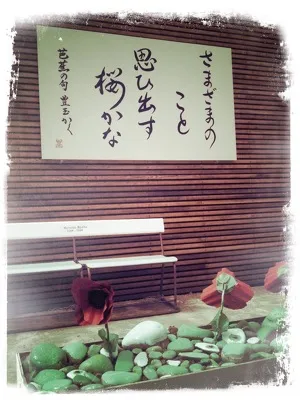 さまざまの
こと
思ひ出す
桜かな
芭蕉の句 豊玉かく